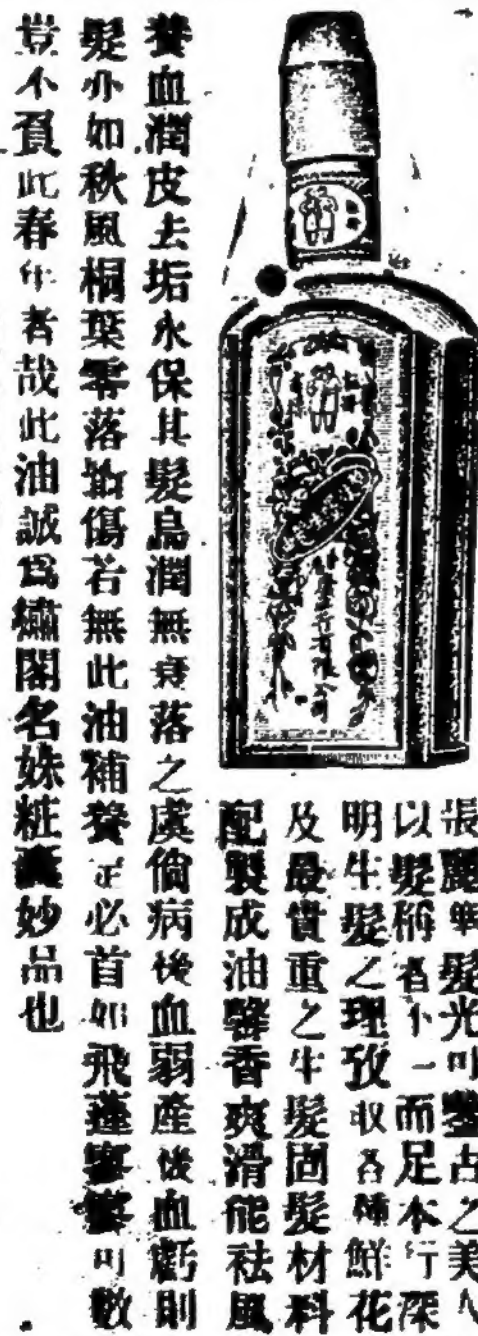 張麗華髮光可鑒古之美人
以髮稱者不一而足本行深
明生髮之理攷收各種鮮花
及最貴重之生髮固髮材料
配製成油馨香爽滑能祛風
養血潤皮去垢永保其髮烏潤無衰落之虞倘病後血弱產後血虧則
髮亦如秋風桐葉零落堪傷若無此油補養 必首如飛蓬寥寥可數
豈不負此春年者哉此油誠爲繡閣名姝粧奩妙品也
有限公司